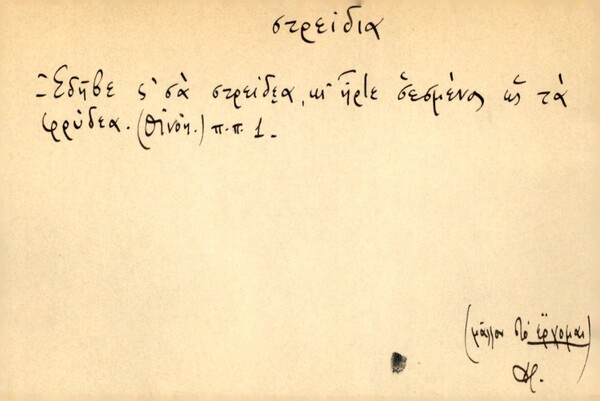 στρείδια
Ξέδηβε ς' σὰ στρείδεα, κι' ἦρτε ὅεσμένος ὥς τὰ
φρύδεα. (Οἰνόη.) π.π. 1.-
(μᾶλλον στὸ ἔρχομαι)